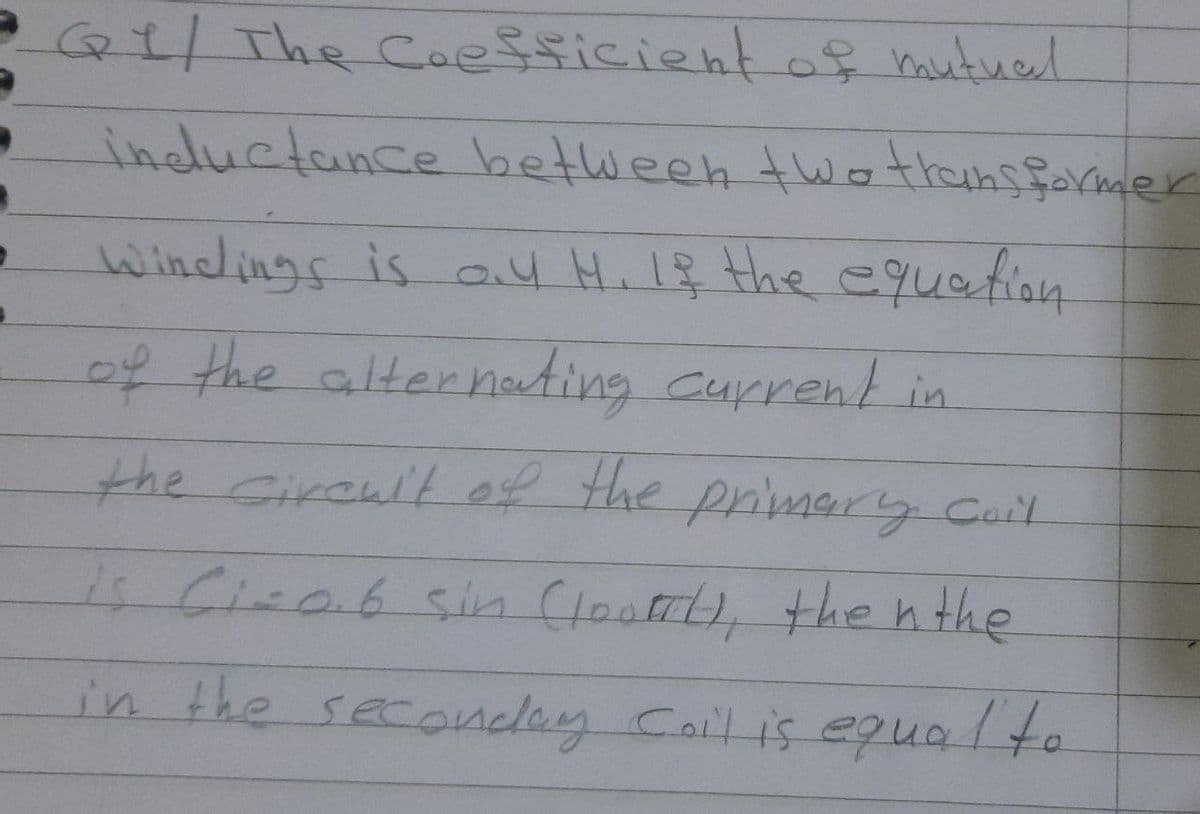 Q1/ The Coefficient of mutual
inductance between two transformer
windings is 0.4 H. If the equation
of the alternating current in
the circuit of the primary coil
is (i=0.6 sin (100πt), then the
in the seconday coil is equal to